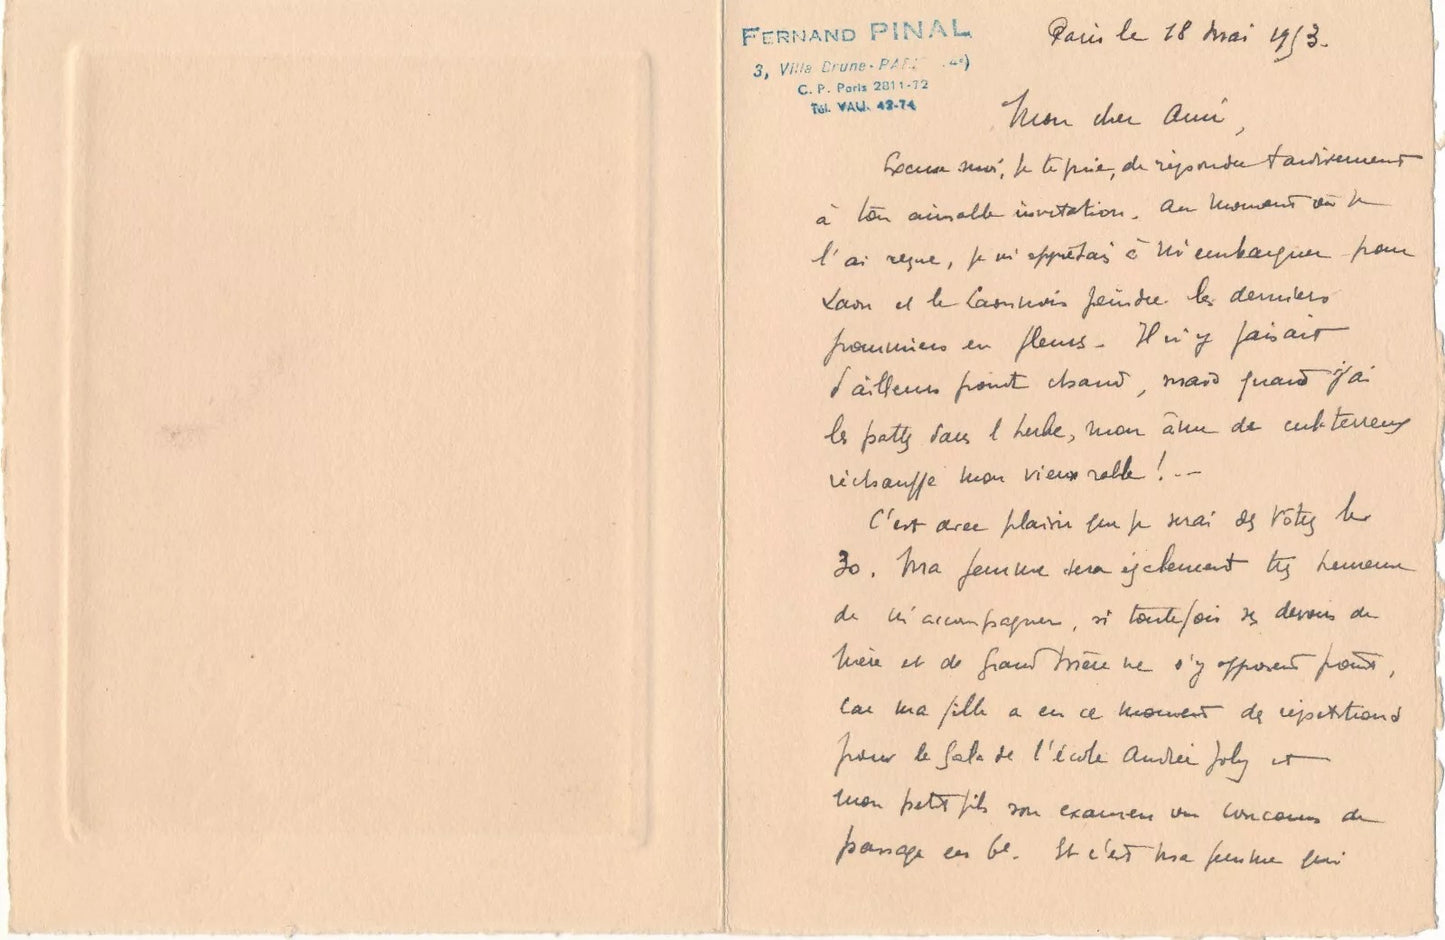 FERNAND PINAL
3, Villa Brune - PARIS
C. P. Paris 2811-72
Tél. VAU. 42-74
Paris le 18 mai 1953.
Mon cher Ami,
Excuse moi, je te prie, de répondre tardivement
à ton aimable invitation. Au moment où je
l'ai reçue, je m'apprêtais à m'embarquer pour
Laon et le Laonnois peindre les derniers
pommiers en fleurs. Il n'y faisait
d'ailleurs point chaud, mais quand j'ai
les pattes dans l'herbe, mon âme de cul-terreux
réchauffe mon vieux rable ! ..
C'est avec plaisir que je serai des vôtres le
30. Ma femme sera également très heureuse
de m'accompagner, si toutefois ses devoirs de
Mère et de Grand Mère ne s'y opposent point,
car ma fille a en ce moment des répétitions
pour le Gala de l'école Joly et
mon petit fils son examen ou concours de
passage en 6e. Et c'est ma femme qui